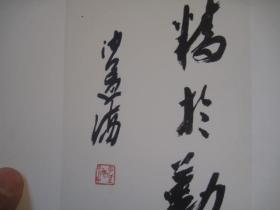 精於勤
沙孟海